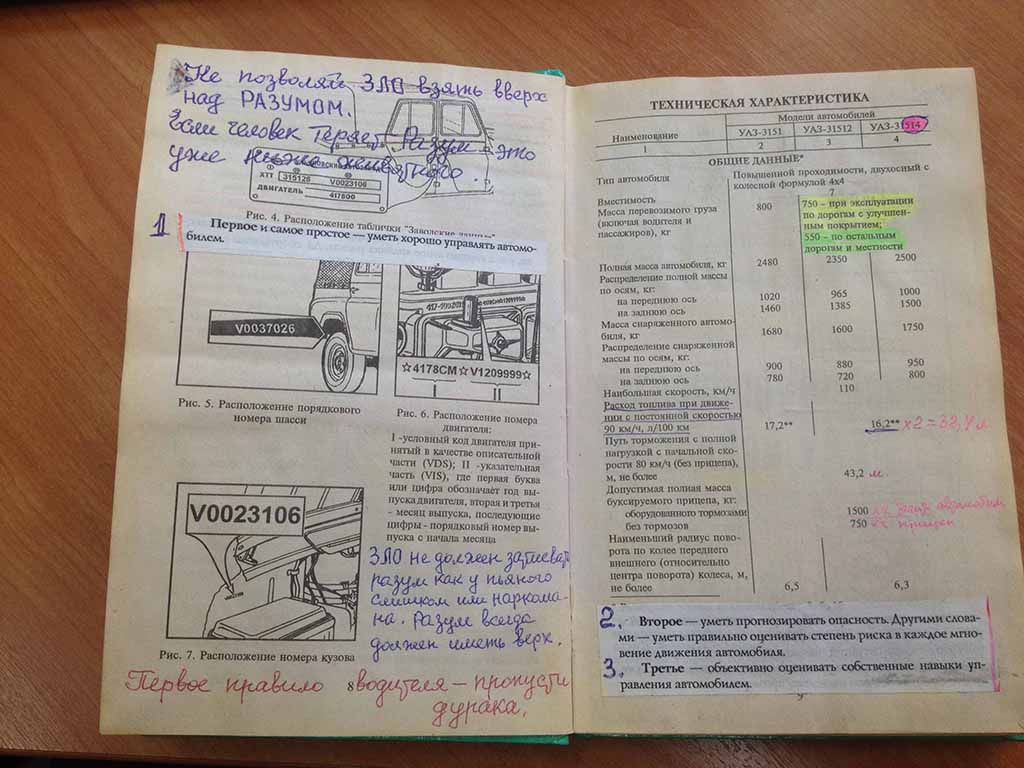 Не позволяй ЗЛО взять вверх
над РАЗУМОМ.
Если человек теряет Разум это
уже
ХТТ 315126 V0023106
ДВИГАТЕЛЬ 417800
Рис. 4. Расположение таблички "Заводские
1 Первое и самое простое — уметь хорошо управлять автомо-
билем.
V0037026
☆4178CM☆V1209999☆
I II
Рис. 5. Расположение порядкового
номера шасси
Рис. 6. Расположение номера
двигателя:
I -условный код двигателя при-
нятый в качестве описательной
части (VDS); II -указательная
часть (VIS), где первая буква
или цифра обозначает год вы-
пуска двигателя, вторая и третья
- месяц выпуска, последующие
цифры - порядковый номер вы-
пуска с начала месяца
V0023106
Рис. 7. Расположение номера кузова
ЗЛО не должен
разум как у пьяного
слишком или наркома-
на. Разум всегда
должен иметь верх.
8
Первое правило водителя — пропусти
дурака.
ТЕХНИЧЕСКАЯ ХАРАКТЕРИСТИКА
Наименование Модели автомобилей
УАЗ-3151 УАЗ-31512 УАЗ-31514
1 2 3 4
ОБЩИЕ ДАННЫЕ*
Тип автомобиля Повышенной проходимости, двухосный с
колесной формулой 4x4
Вместимость 7
Масса перевозимого груза 800 750 – при эксплуатации
(включая водителя и по дорогам с улучшен-
пассажиров), кг ным покрытием;
550 – по остальным
дорогам и местности
Полная масса автомобиля, кг 2480 2350 2500
Распределение полной массы
по осям, кг:
на переднюю ось 1020 965 1000
на заднюю ось 1460 1385 1500
Масса снаряженного автомо-
биля, кг 1680 1600 1750
Распределение снаряженной
массы по осям, кг:
на переднюю ось 900 880 950
на заднюю ось 780 720 800
Наибольшая скорость, км/ч 110
Расход топлива при движе-
нии с постоянной скоростью
90 км/ч, л/100 км 17,2** 16,2** x2=32,4л
Путь торможения с полной
нагрузкой с начальной ско-
рости 80 км/ч (без прицепа),
м, не более 43,2 м.
Допустимая полная масса
буксируемого прицепа, кг:
оборудованного тормозами 1500
без тормозов 750
Наименьший радиус пово-
рота по колее переднего
внешнего (относительно
центра поворота) колеса, м,
не более 6,5 6,3
2. Второе — уметь прогнозировать опасность. Другими слова-
ми — уметь правильно оценивать степень риска в каждое мгно-
вение движения автомобиля.
3. Третье — объективно оценивать собственные навыки уп-
равления автомобилем.
9